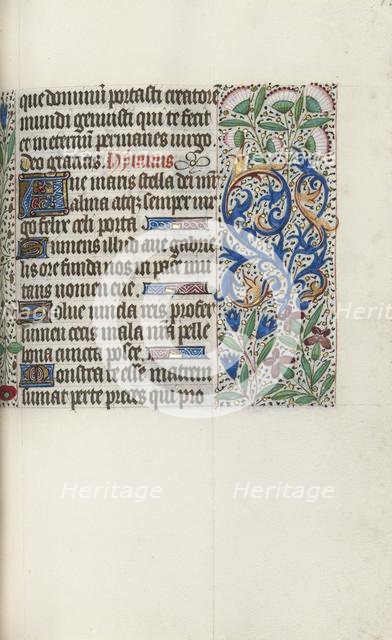 que dominum portasti creatorē
mundi genuisti qui te fecit
et in eternum permanes virgo
Deo gratias Hymnus
Ave maris stella dei
alma atq; semper vir
go felix celi porta
Sumens illud ave gabrie
lis ore funda nos in pace mu
tans nomen eve
Solve vincla reis profer
lumen cecis mala nr̄a pelle
bona cuncta posce
Monstra te esse matrem
sumat per te preces qui pro
Heritage Heritage
Heritage Heritage
Heritage Heritage